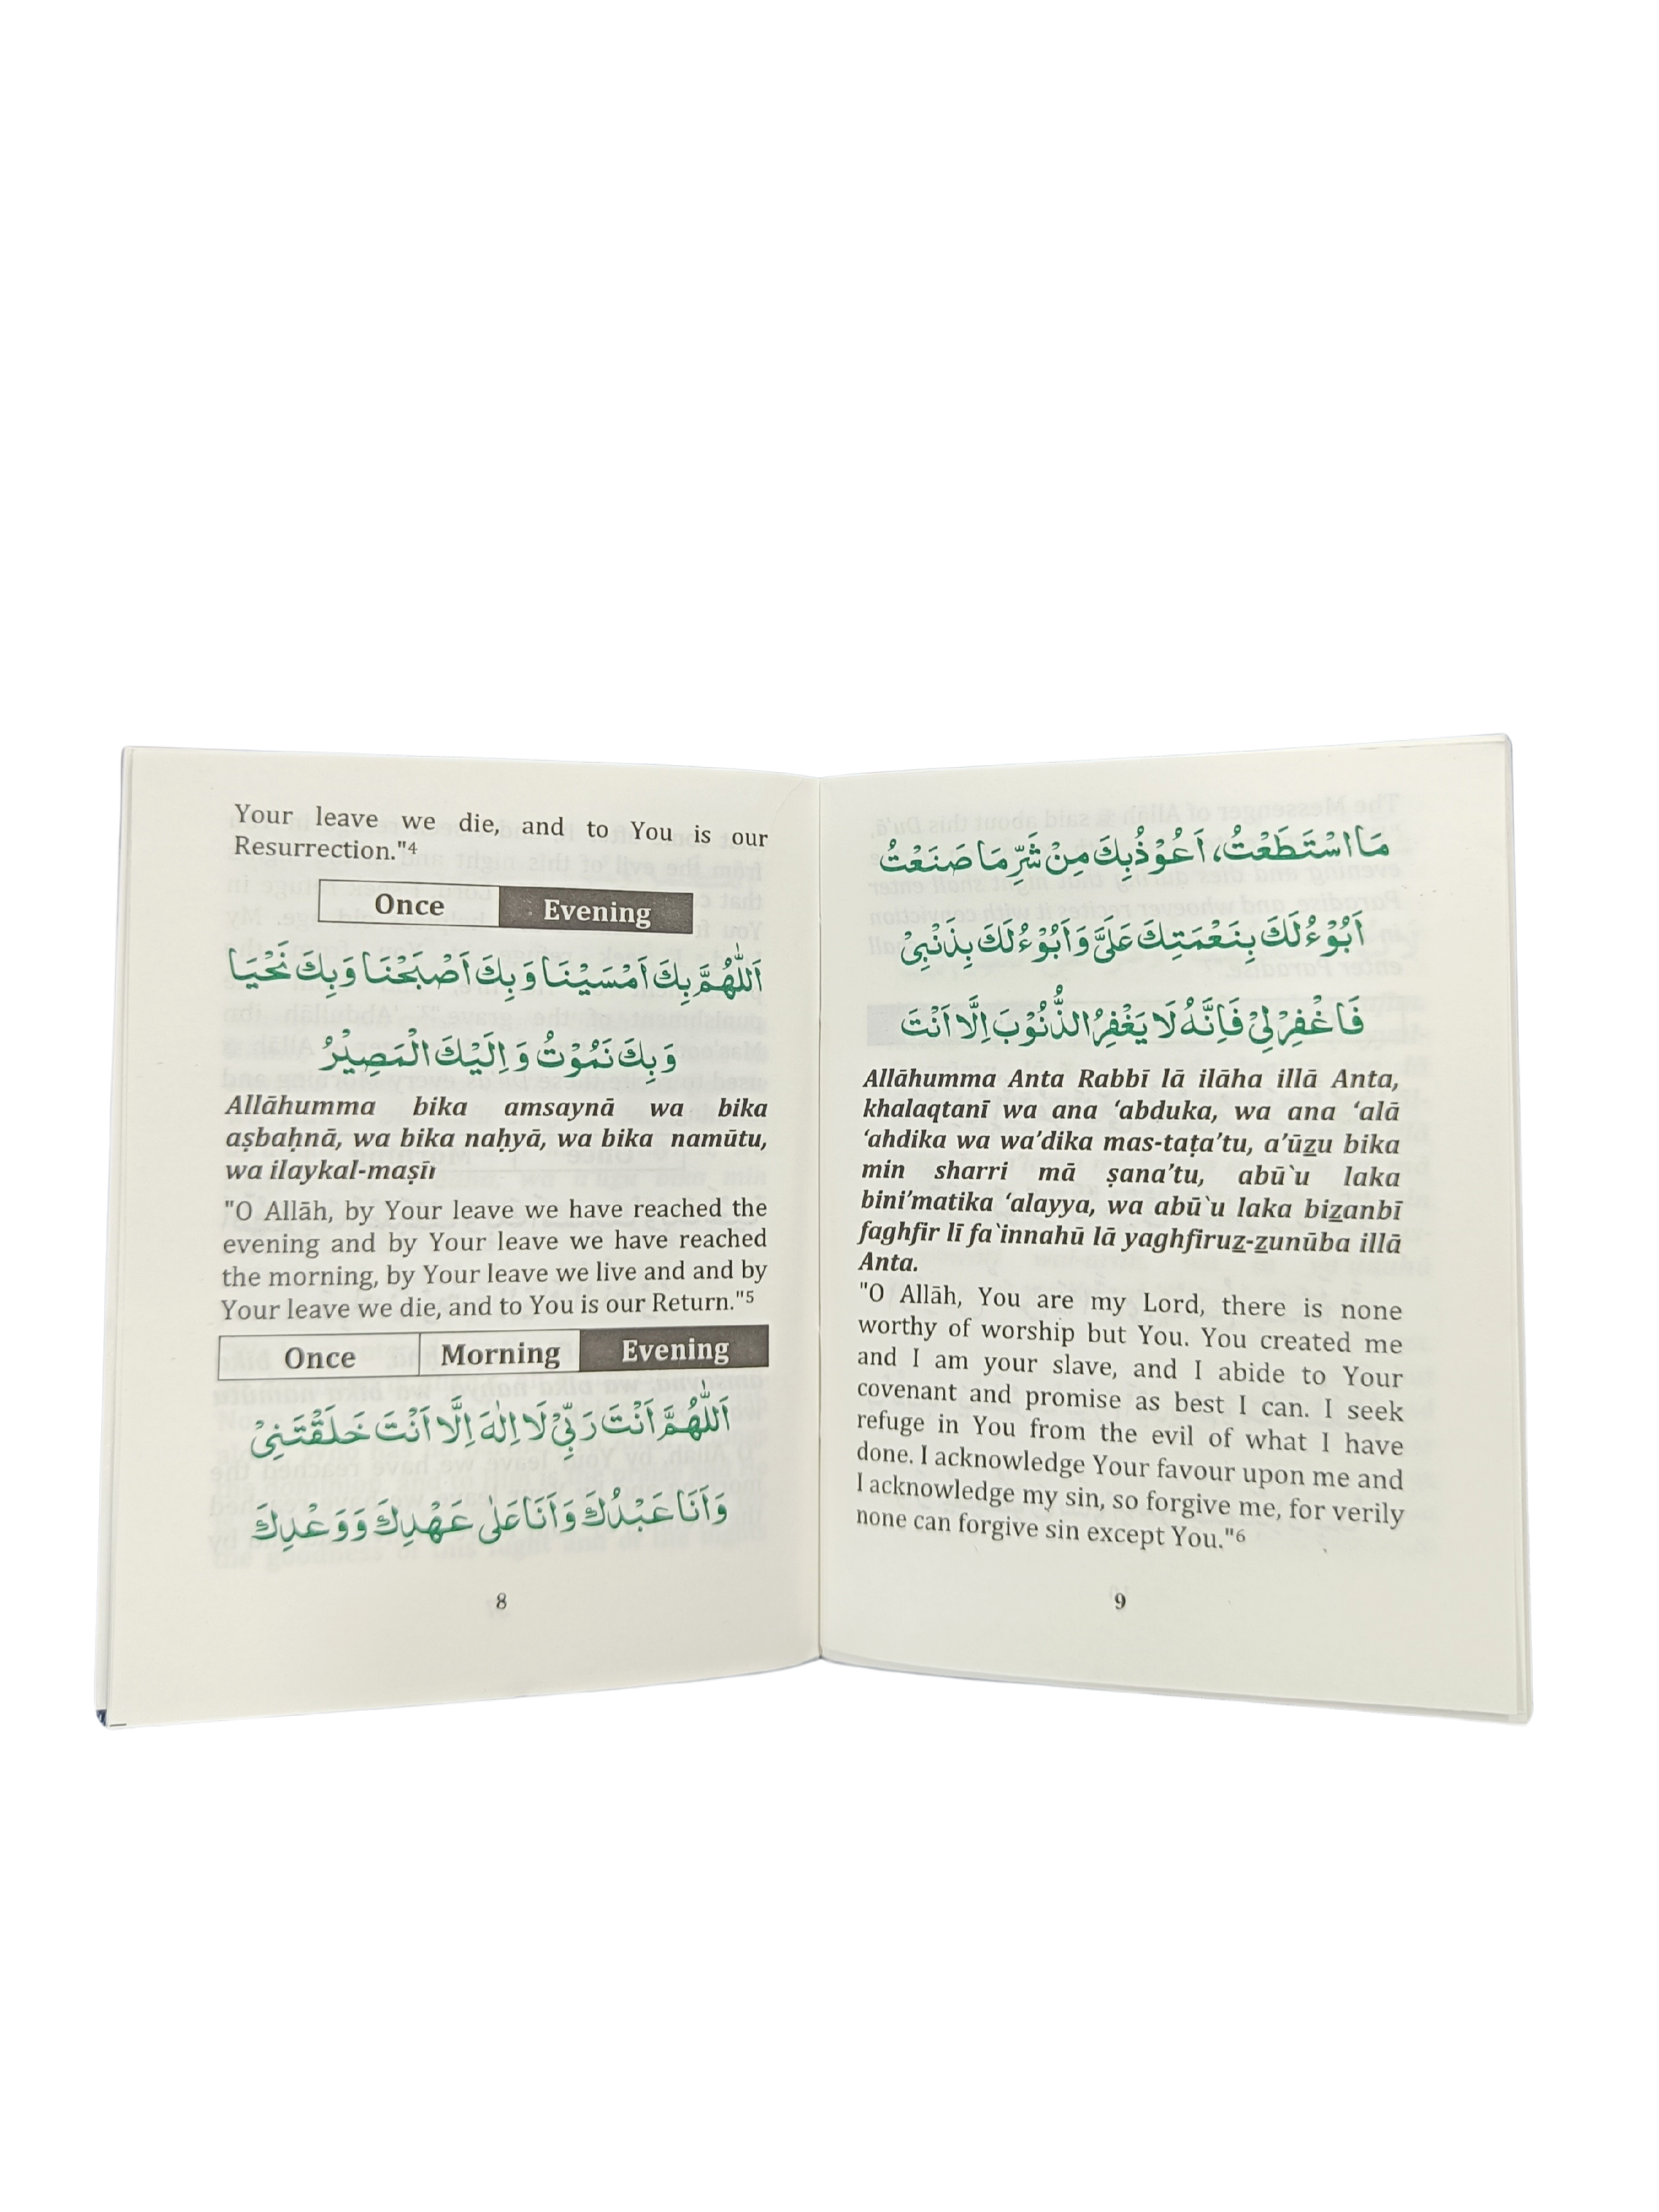 Your leave we die, and to You is our
Resurrection."4
Once Evening
اَللّٰهُمَّ بِكَ اَمْسَيْنَا وَبِكَ اَصْبَحْنَا وَبِكَ نَحْيَا
وَبِكَ نَمُوْتُ وَ اِلَيْكَ الْمَصِيْرُ
Allāhumma bika amsaynā wa bika
aṣbaḥnā, wa bika naḥyā, wa bika namūtu,
wa ilaykal-maṣīr
"O Allāh, by Your leave we have reached the
evening and by Your leave we have reached
the morning, by Your leave we live and and by
Your leave we die, and to You is our Return."5
Once Morning Evening
اَللّٰهُمَّ اَنْتَ رَبِّيْ لَا اِلٰهَ اِلَّا اَنْتَ خَلَقْتَنِيْ
وَاَنَا عَبْدُكَ وَاَنَا عَلٰى عَهْدِكَ وَوَعْدِكَ
8
مَا اسْتَطَعْتُ، اَعُوْذُبِكَ مِنْ شَرِّ مَا صَنَعْتُ
اَبُوْءُ لَكَ بِنَعْمَتِكَ عَلَيَّ وَاَبُوْءُ لَكَ بِذَنْبِيْ
فَاغْفِرْ لِيْ فَاِنَّهُ لَا يَغْفِرُ الذُّنُوْبَ اِلَّا اَنْتَ
Allāhumma Anta Rabbī lā ilāha illā Anta,
khalaqtanī wa ana ‘abduka, wa ana ‘alā
‘ahdika wa wa’dika mas-taṭa’tu, a’ūẕu bika
min sharri mā ṣana’tu, abū`u laka
bini’matika ‘alayya, wa abū`u laka biẕanbī
faghfir lī fa`innahū lā yaghfiruẕ-ẕunūba illā
Anta.
"O Allāh, You are my Lord, there is none
worthy of worship but You. You created me
and I am your slave, and I abide to Your
covenant and promise as best I can. I seek
refuge in You from the evil of what I have
done. I acknowledge Your favour upon me and
I acknowledge my sin, so forgive me, for verily
none can forgive sin except You."6
9